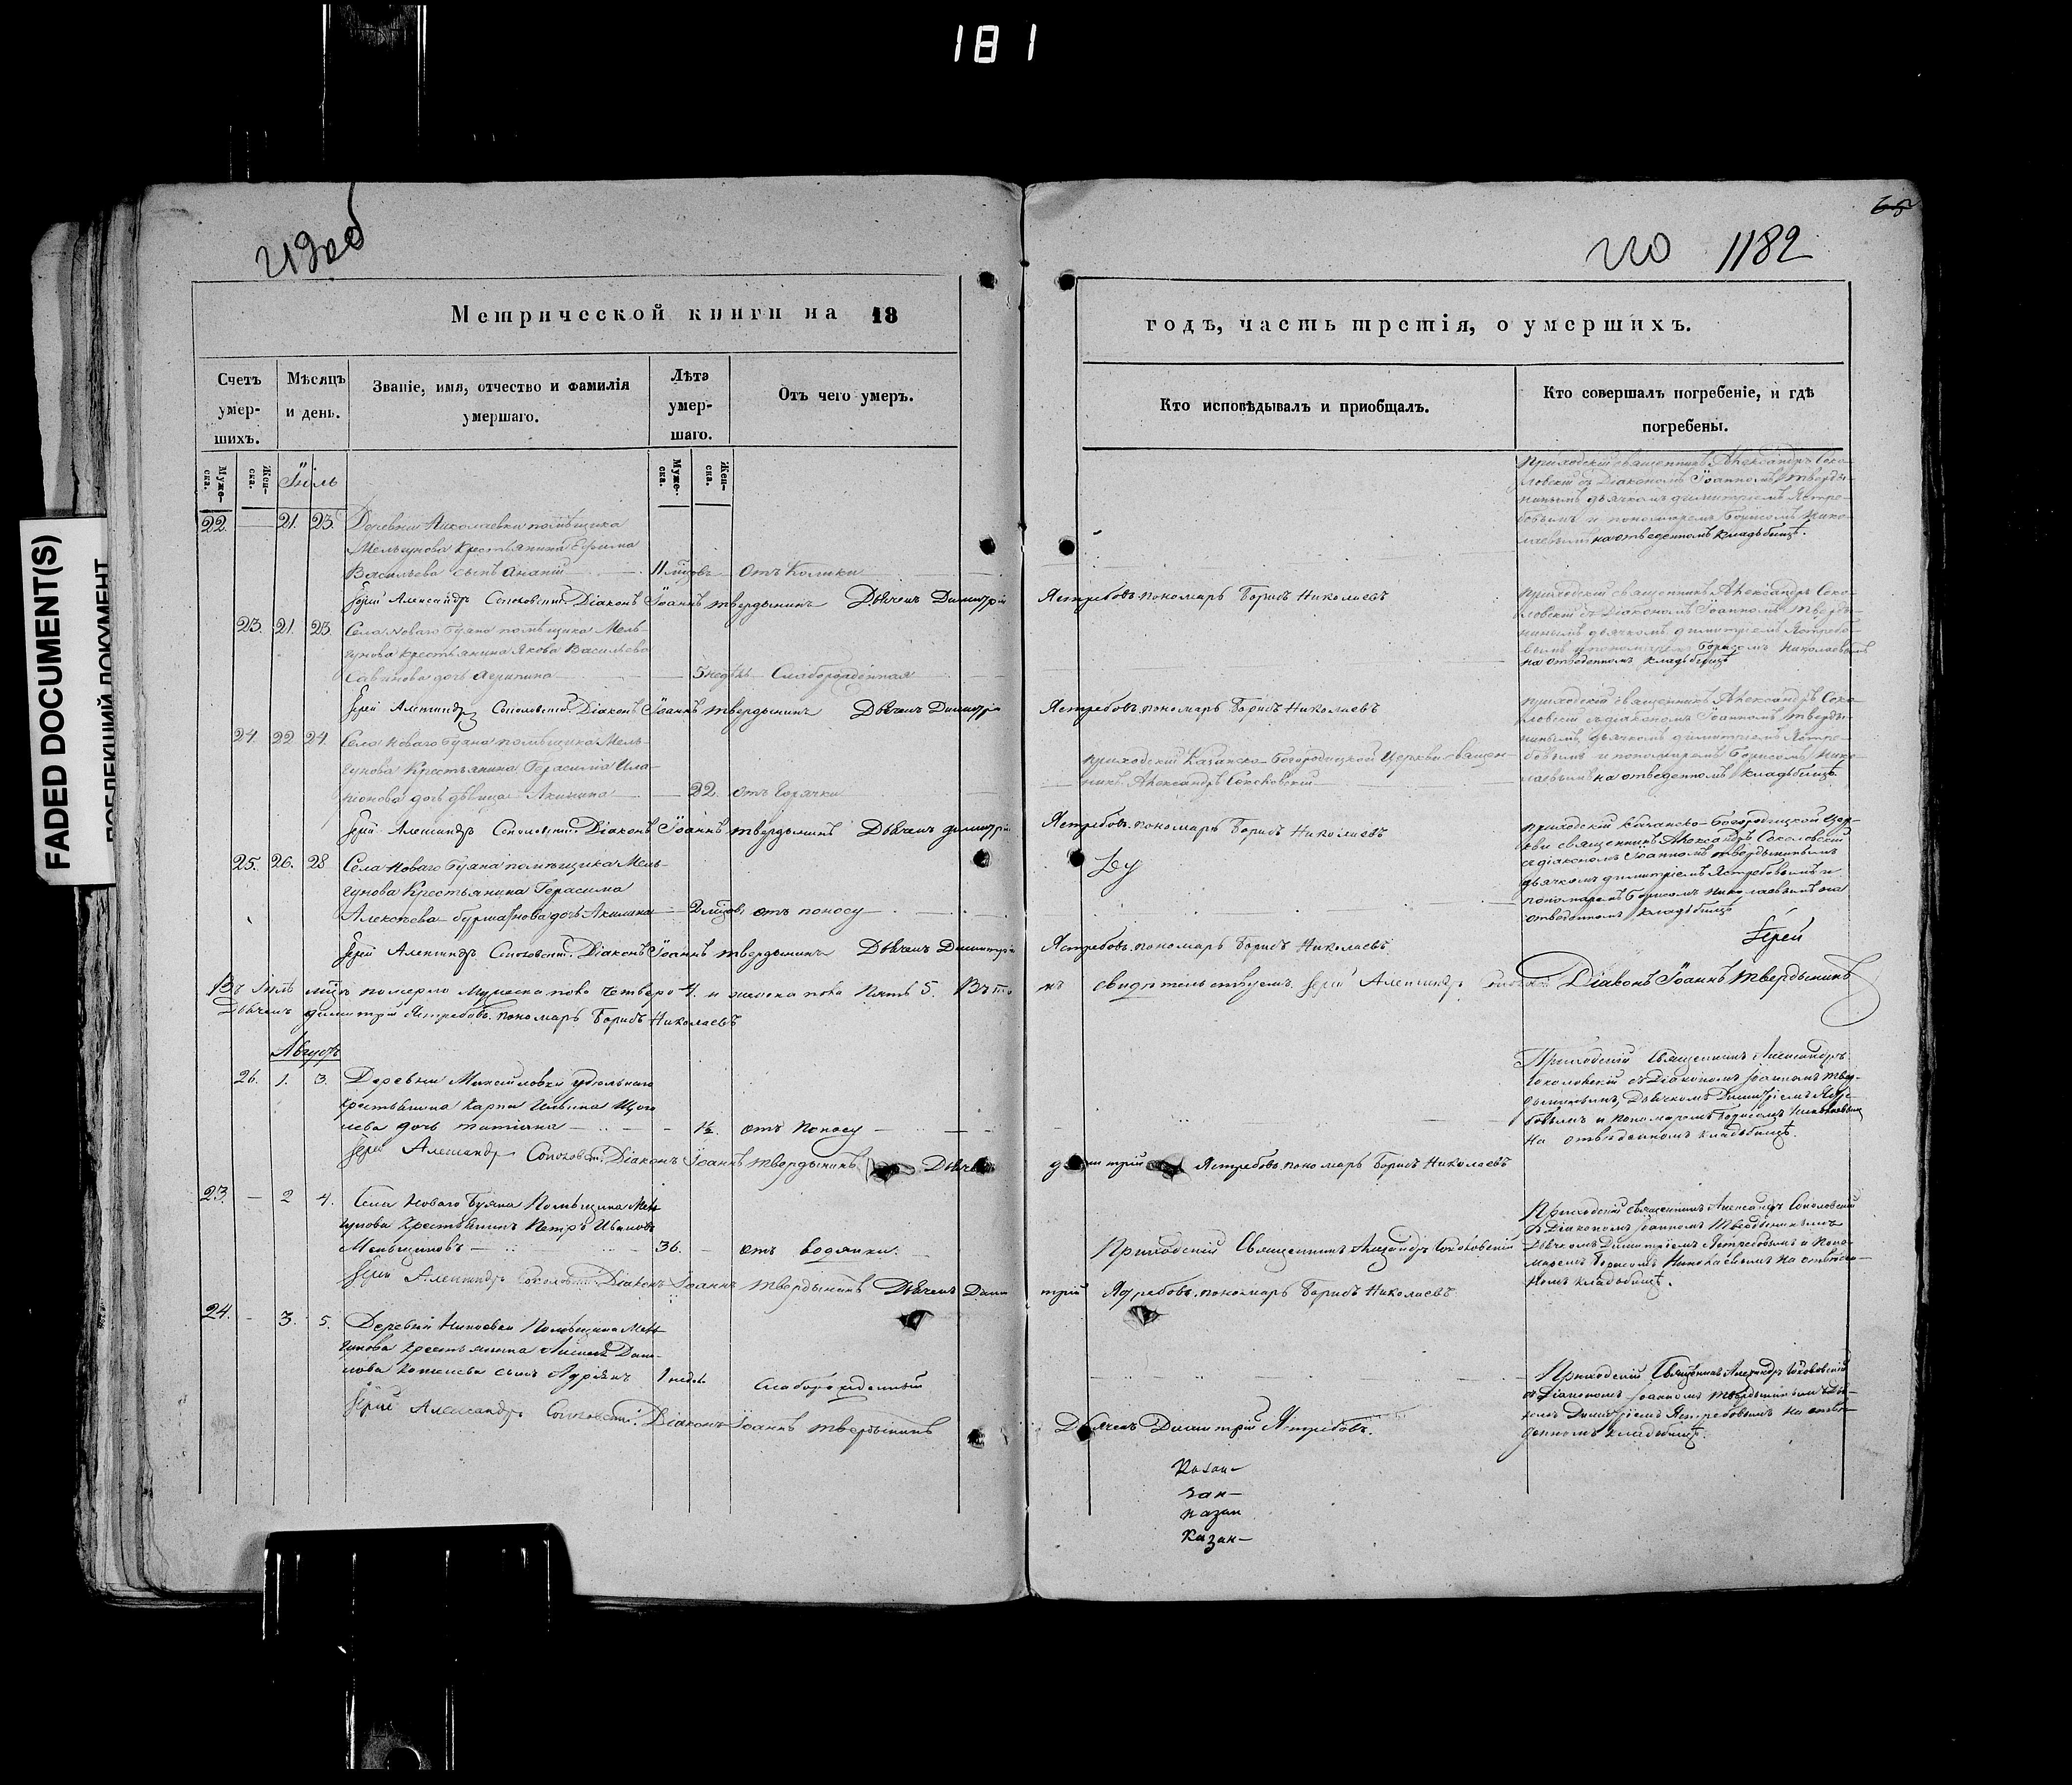 181
65
1182
FADED DOCUMENT(S)
Метрической книги на 18
годъ, часть третія, о умершихъ.
Счетъ умер-шихъ.
Мѣсяцъ и день.
Званіе, имя, отчество и фамилія умершаго.
Лѣта умер-шаго.
Отъ чего умеръ.
Кто исповѣдывалъ и пріобщалъ.
Кто совершалъ погребеніе, и гдѣ погребены.
Муже-ска.
Жен-ска.
Муже-ска.
Жен-ска.
Іюль
приходскій священникъ Александръ Соко-
ловскій съ Діакономъ Іоанномъ Тверды-
нинымъ дьячкомъ димитріемъ Ястре-
бовымъ и пономаремъ Борисомъ Нико-
лаевымъ на отведенномъ кладьбищѣ.
22. 21. 23. Деревни Николаевки помѣщика
Мельгунова Крестьянина Ефима
Васильева сынъ Ананій 11 мцовъ отъ Колики
Іерей Александръ Соколовскій. Діаконъ Іоаннъ Твердынинъ Дьячекъ Димитрій Ястребовъ. пономарь Борисъ Николаевъ
приходскій священникъ Александръ Соко-
ловскій съ Діакономъ Іоанномъ Тверды-
нинымъ дьячкомъ димитріемъ Ястребо-
вымъ и пономаремъ Борисомъ Николаевымъ
на отведенномъ кладьбищѣ
23. 21. 23. Села Новаго Буяна помѣщика Мель-
гунова крестьянина Якова Васильева
Савинова дочь Агрипина 5 недѣль Слаборожденная
Іерей Александръ Соколовскій. Діаконъ Іоаннъ Твердынинъ Дьячекъ Димитрій Ястребовъ. пономарь Борисъ Николаевъ
приходскій священникъ Александръ Соко-
ловскій съ діакономъ Іоанномъ Тверды-
нинымъ, дьячкомъ димитріемъ Ястре-
бовымъ и пономаремъ Борисомъ Нико-
лаевымъ на отведенномъ кладьбищѣ.
24. 22 24. Села Новаго Буяна помѣщика Мель-
гунова Крестьянина Герасима Ила-
ріонова дочь дѣвица Акилина 22. отъ Горячки
приходскій Казанско-Богородицкой Церкви священ-
никъ Александръ Соколовскій
Іерей Александръ Соколовскій. Діаконъ Іоаннъ Твердынинъ Дьячекъ димитрій Ястребовъ. пономарь Борисъ Николаевъ
приходскій Казанско-Богородицкой Цер-
кви священникъ Александръ Соколовскій
съ діакономъ Іоанномъ Твердынинымъ
дьячкомъ димитріемъ Ястребовымъ и
пономаремъ Борисомъ Николаевымъ на
отведенномъ кладьбищѣ
25. 26. 28 Села Новаго Буяна помѣщика Мель-
гунова Крестьянина Герасима
Алексѣева дочь Акилина 2 мцовъ отъ поносу
Іерей Александръ Соколовскій. Діаконъ Іоаннъ Твердынинъ Дьячекъ Димитрій Ястребовъ. пономарь Борисъ Николаевъ
Іерей
Въ Іюлѣ мцѣ померло Мужеска пола Четверо 4. и женска пола Пять 5. Въ томъ свидѣтельствуемъ. Іерей Александръ Соколовскій Діаконъ Іоаннъ Твердынинъ
Дьячекъ димитрій Ястребовъ. пономарь Борисъ Николаевъ
Августъ
26. 1. 3. Деревни Михайловки удѣльнаго
крестьянина Карпа Ильина Щого
лева дочь Татіана 1½. отъ Поносу
Приходскій Священникъ Александръ
Соколовскій съ Діакономъ Іоанномъ Твер-
дынинымъ, Дьячкомъ Димитріемъ Ястре
бовымъ и Пономаремъ Борисомъ Николаевымъ
На отведенномъ кладьбищѣ.
Іерей Александръ Соколовскій. Діаконъ Іоаннъ Твердынинъ Дьячекъ димитрій Ястребовъ. пономарь Борисъ Николаевъ
23. 2 4. Села Новаго Буяна Помѣщика Мель
гунова Крестьянинъ Петръ Ивановъ
Меньщиковъ 36. отъ водянки.
Приходскій Священникъ Александръ Соколовскій
Приходскій священникъ Александръ Соколовскій
съ Діакономъ Іоанномъ Твердынинымъ
Дьячкомъ Димитріемъ Ястребовымъ и Поно-
маремъ Борисомъ Николаевымъ на отведен-
номъ кладьбищѣ.
Іерей Александръ Соколовскій. Діаконъ Іоаннъ Твердынинъ Дьячекъ Димитрій Ястребовъ. пономарь Борисъ Николаевъ
24. 3. 5. Деревни Помѣщика Мель
гунова крестьянина Дани-
лова сынъ 1 недѣл. Слаборожденный
Приходскій Священникъ Александръ Соколовскій
съ Діакономъ Іоанномъ Твердынинымъ Дьяч-
комъ Димитріемъ Ястребовымъ на отве-
денномъ кладьбищѣ.
Іерей Александръ Соколовскій. Діаконъ Іоаннъ Твердынинъ Дьячекъ Димитрій Ястребовъ.
Казан-
зан-
казан
Казан-